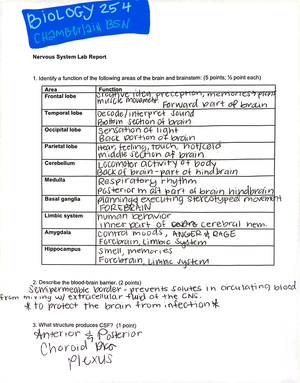 BIOLOGY 254
CHAMBERLAIN BSN
Nervous System Lab Report
1. Identify a function of the following areas of the brain and brainstem: (5 points; ½ point each)
Area Function
Frontal lobe creative idea, preception, memories, plan
muscle movement. Forward part of brain
Temporal lobe Decode/interpret sound
Bottom section of brain
Occipital lobe Sensation of light
Back portion of brain
Parietal lobe Hear, feeling, touch, hot/cold
middle section of brain
Cerebellum Locomotor activity of body
Back of brain - part of hindbrain
Medulla Respiratory rhythm
Posterior most part of brain hindbrain
Basal ganglia planning & executing stereotyped movement
FOREBRAIN
Limbic system human behavior
inner part of cerebral hem.
Amygdala control moods, ANGER & RAGE
Forebrain, Limbic System
Hippocampus Smell, memories
Forebrain, Limbic system
2. Describe the blood-brain barrier. (2 points)
Semipermeable border - prevents solutes in circulating blood
from mixing w/ extracellular fluid of the CNS.
* to protect the brain from infection *
3. What structure produces CSF? (1 point)
Anterior & Posterior
Choroid
plexus